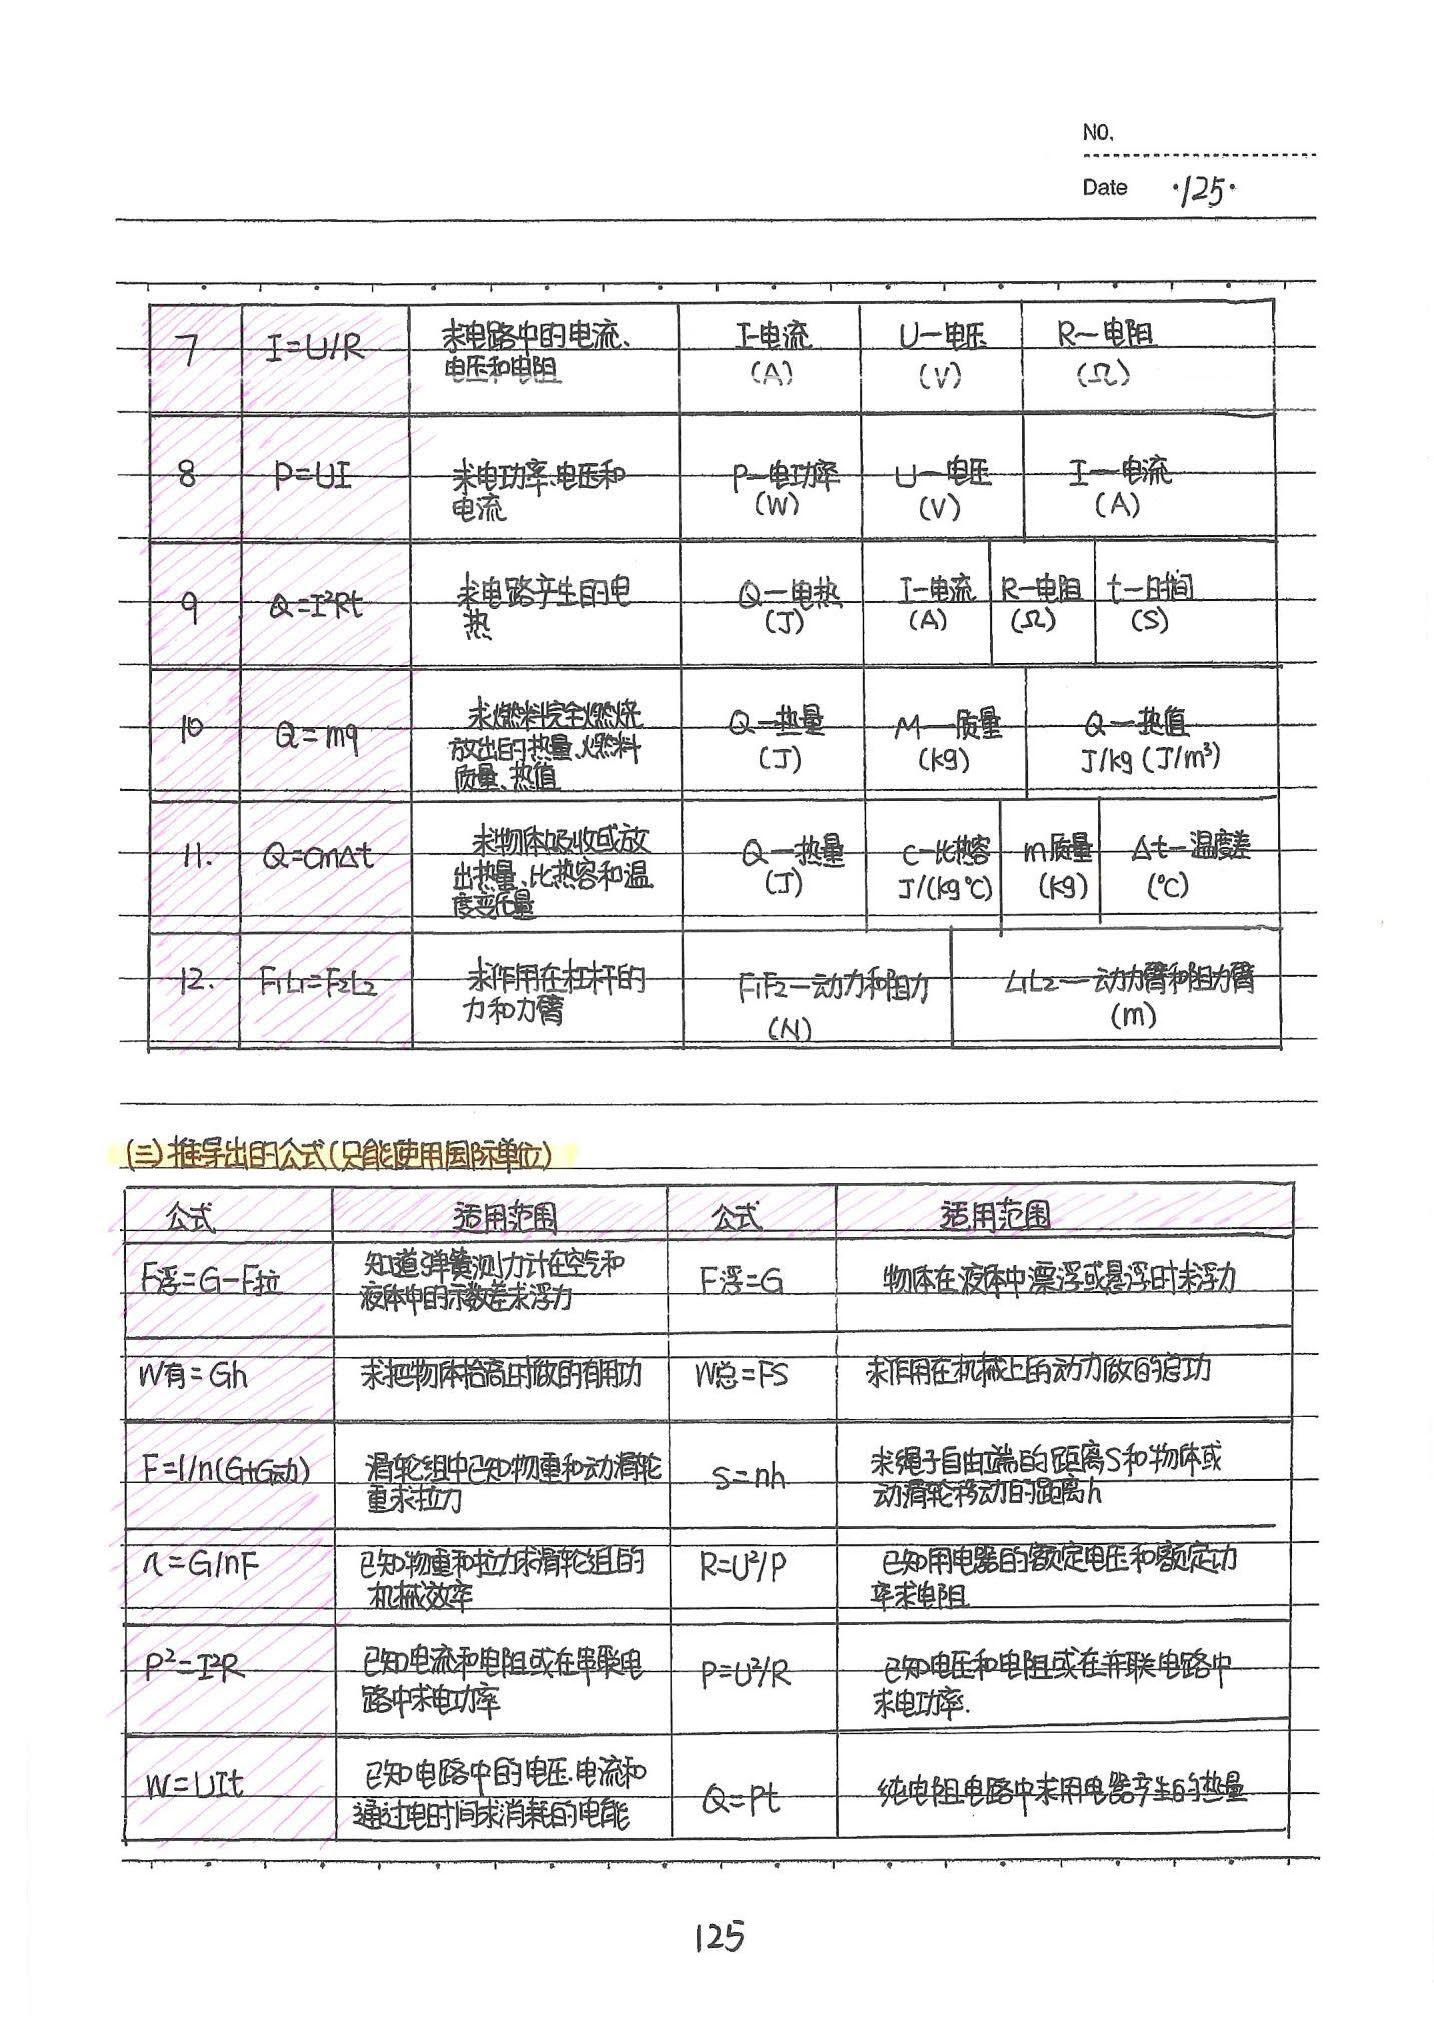 NO.
Date ·125·
7 I=U/R 求电路中的电流、 I-电流 U一电压 R一电阻
电压和电阻 (A) (V) (Ω)
8 P=UI 求电功率、电压和 P一电功率 U一电压 I一电流
电流 (W) (V) (A)
9 Q=I²Rt 求电路产生的电 Q一电热 I-电流 R-电阻 t-时间
热 (J) (A) (Ω) (S)
10 Q=mq 求燃料完全燃烧 Q一热量 M一质量 Q一热值
放出的热量、燃料 (J) (kg) J/kg (J/m³)
质量、热值
11. Q=cm△t 求物体吸收或放 Q一热量 c-比热容 m质量 △t-温度差
出热量、比热容和温 (J) J/(kg℃) (kg) (℃)
度变质量
12. F₁L₁=F₂L₂ 求作用在杠杆的 F₁F₂一动力和阻力 L₁L₂一动力臂和阻力臂
力和力臂 (N) (m)
(三)推导出的公式(只能使用国际单位)
公式 适用范围 公式 适用范围
F浮=G-F拉 知道弹簧测力计在空气和 F浮=G 物体在液体中漂浮或悬浮时求浮力
液体中的示数差求浮力
W有=Gh 求把物体抬高时做的有用功 W总=FS 求作用在机械上的动力做的总功
F=1/n(G+G动) 滑轮组中已知物重和动滑轮 S=nh 求绳子自由端的距离S和物体或
重求拉力 动滑轮移动的距离h
η=G/nF 已知物重和拉力求滑轮组的 R=U²/P 已知用电器的额定电压和额定功
机械效率 率求电阻
P²=I²R 已知电流和电阻或在串联电 P=U²/R 已知电压和电阻或在并联电路中
路中求电功率 求电功率.
W=UIt 已知电路中的电压.电流和 Q=Pt 纯电阻电路中求用电器产生的热量
通过电时间求消耗的电能
125